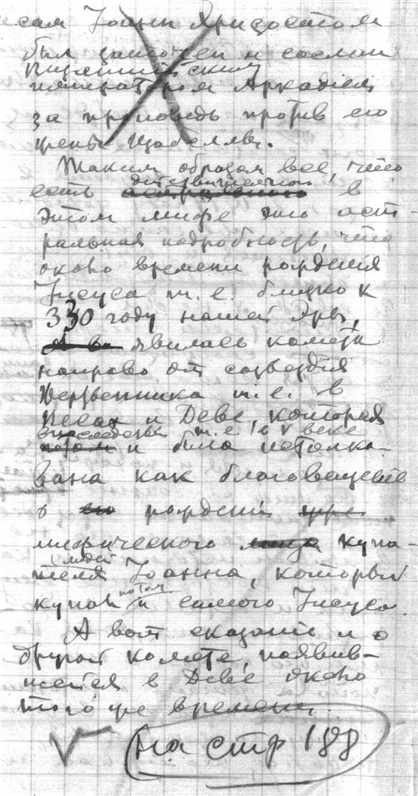 сам Іоанн Хризостом
был заточен и сослан
Византийским
императором Аркадием
за проповедь против его
жены Изабеллы.
Таким образом все, что
есть действительного в
этом мифе это аст
ральная подробность, что
около времени рождения
Іисуса т. е. близко к
330 году нашей эры,
явилась комета
направо от созвездия
Жертвенника т. е. в
Весах и Деве, которая
впоследствии т. е. в V веке
и была истолко-
вана как благовещение
о рождении
мифического купа-
теля людей Іоанна, который
купал потом и самого Іисуса.
А вот сказание и о
другой комете, появив-
шейся в Деве около
того же времени.
На стр 188